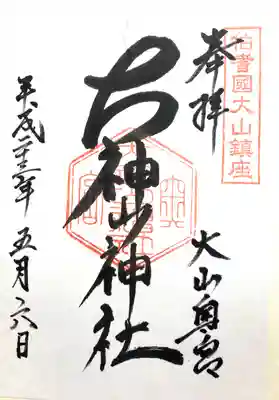 伯耆國大山鎮座
奉拝
大山奥宮
大神山神社
平成二十三年五月六日